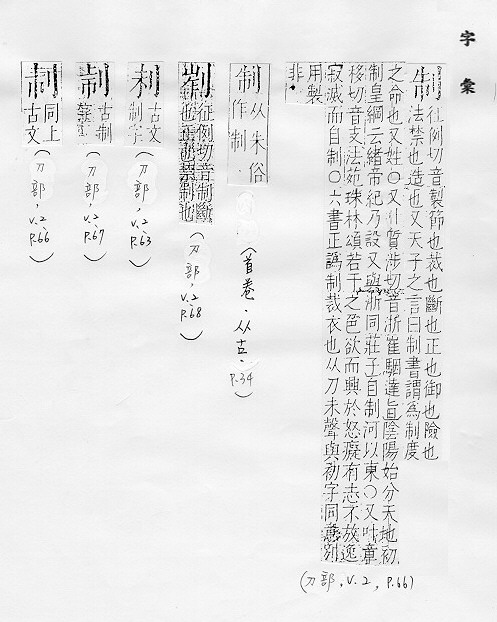 字彙
制 征例切音製節也裁也斷也正也御也險也
法禁也造也又天子之言曰制書謂為制度
之命也又姓○又質涉切音浙崔駰達旨陰陽始分天地初
制皇綱云緒帝紀乃設又與浙同莊子自制河以東○又叶章
移切音支法苑珠林頌若干之色欲而興於怒癡有志不放逸
寂滅而自制○六書正譌制裁衣也从刀未聲與初字同意別
用製
非
(刀部,V.2,P.66)
制 从朱俗
作制
(首卷.从古.P.34)
征例切音制斷
(刀部,V.2,P.68)
古文
制字
(刀部,V.2,P.63)
古制
(刀部,V.2,P.67)
同上
古文
(刀部,V.2,P.66)